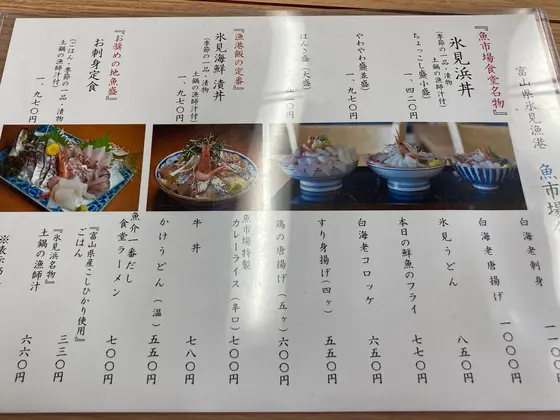 富山県氷見漁港
魚市場
『魚市場食堂名物』
氷見浜丼
(季節の一品・漬物
土鍋の漁師汁付)
ちょっこし盛(小盛)
一、四二〇円
やわやわ盛(並盛)
一、九七〇円
はんさ盛(大盛)
『漁港飯の定番』
氷見海鮮漬丼
(季節の一品・漬物
土鍋の漁師汁付)
一、九七〇円
『お奨めの地魚盛』
お刺身定食
(ごはん・季節の一品・漬物
土鍋の漁師汁付)
一、九七〇円
白海老刺身
一〇〇〇円
白海老唐揚げ
一〇〇〇円
氷見うどん
八五〇円
本日の鮮魚のフライ
七七〇円
白海老コロッケ
六六〇円
すり身揚げ(四ヶ)
鶏の唐揚げ(五ヶ)
六〇〇円
魚市場特製
カレーライス(辛口)
七〇〇円
牛丼
七八〇円
かけうどん(温)
五五〇円
魚介一番だし
食堂ラーメン
七〇〇円
『富山県産こしひかり使用』
ごはん
三三〇円
『氷見浜名物』
土鍋の漁師汁
六六〇円